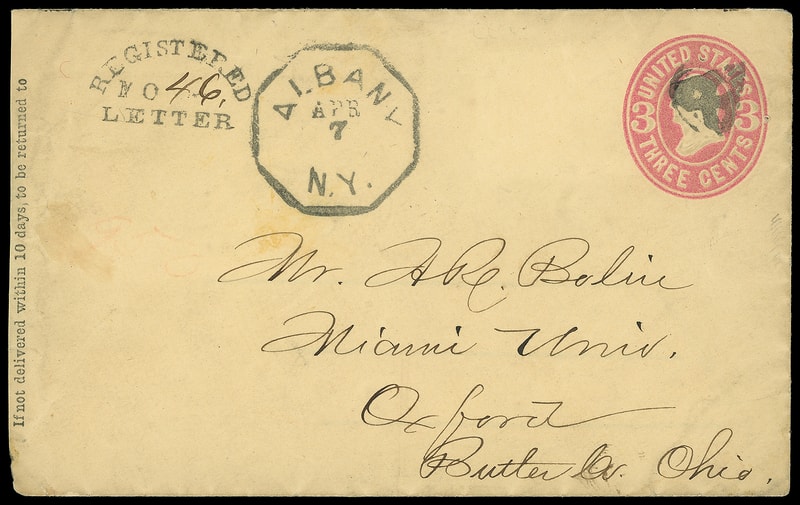 REGISTERED
NO 46.
LETTER
ALBANY
APR
7
N.Y.
UNITED STATES
3 3
THREE CENTS
If not delivered within 10 days, to be returned to
Mr. A R. Bolin
Miami Univ.
Oxford
Butler Co. Ohio.